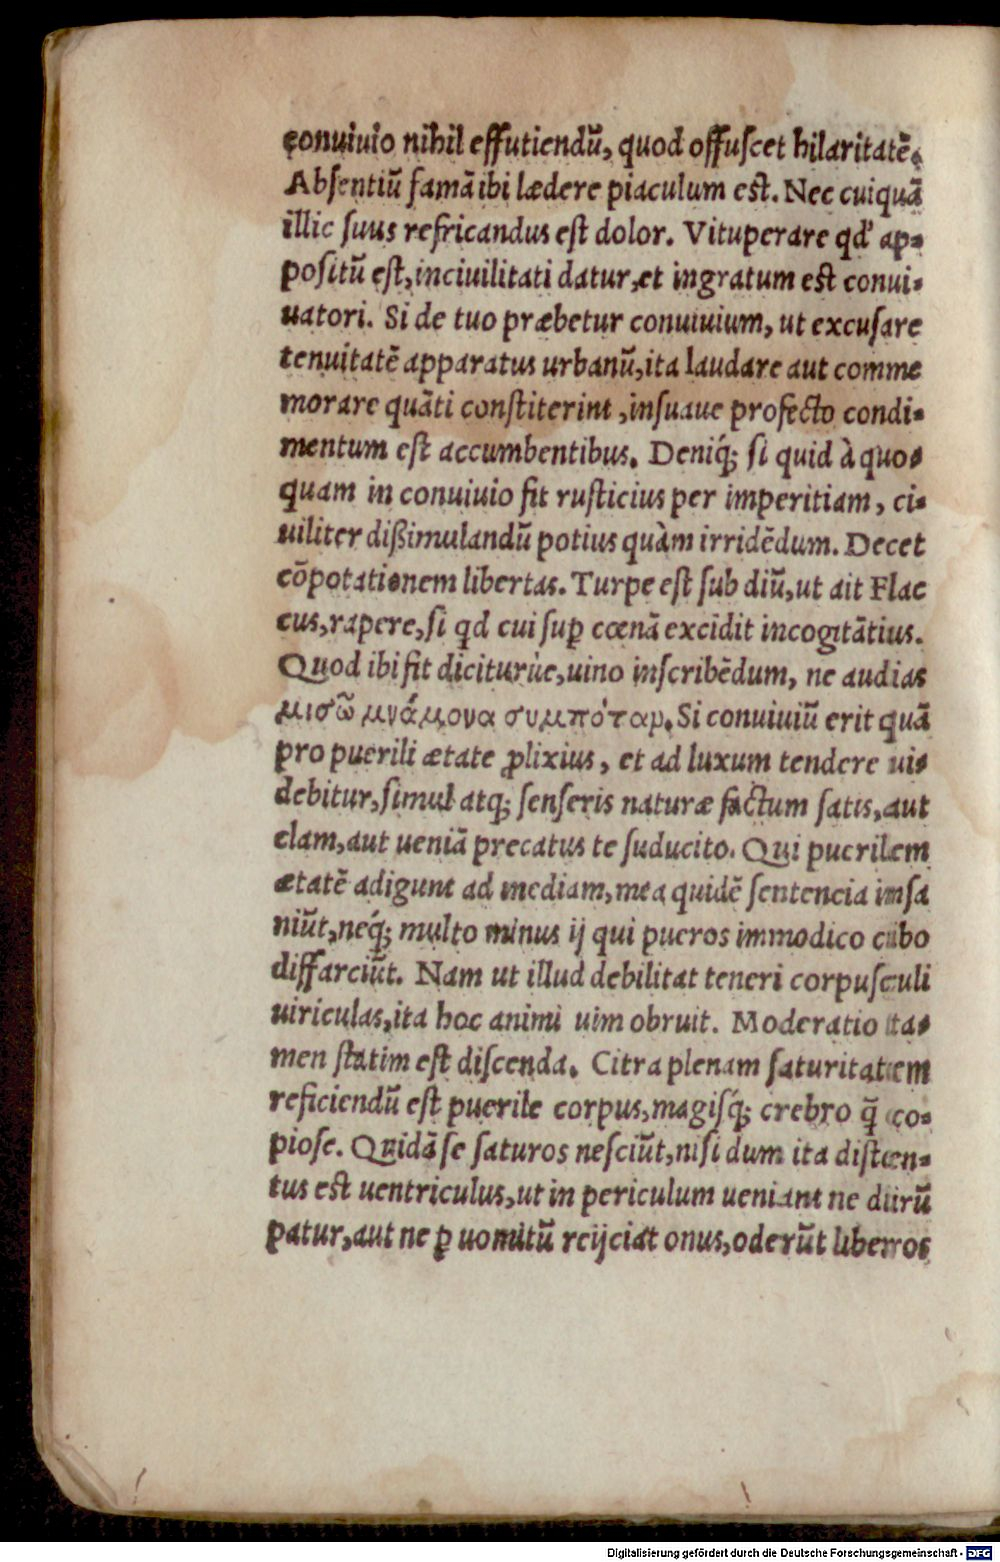 conuiuio nihil effutiendũ, quod offuſcet hilaritatẽ.
Abſentiũ famã ibi lædere piaculum eſt. Nec cuiquã
illic ſuus refricandus eſt dolor. Vituperare qd' ap-
poſitũ eſt, inciuilitati datur, et ingratum eſt conui-
uatori. Si de tuo præbetur conuiuium, ut excuſare
tenuitatẽ apparatus urbanũ, ita laudare aut comme
morare quãti conſtiterint, inſuaue profecto condi-
mentum eſt accumbentibus. Deniq́; ſi quid à quo-
quam in conuiuio fit ruſticius per imperitiam, ci-
uiliter dißimulandũ potius quàm irridẽdum. Decet
cõpotationem libertas. Turpe eſt ſub diũ, ut ait Flac
cus, rapere, ſi qd cui ſuꝑ cœnã excidit incogitãtius.
Quod ibi fit diciturùe, uino inſcribẽdum, ne audias
μισῶ μνάμονα συμπόταρ. Si conuiuiũ erit quã
pro puerili ætate ꝓlixius, et ad luxum tendere ui-
debitur, ſimul atq; ſenſeris naturæ factum ſatis, aut
clam, aut ueniã precatus te ſuducito. Qui puerilem
ætatẽ adigunt ad mediam, mea quidẽ ſentencia inſa
niũt, neq́; multo minus ij qui pueros immodico cibo
diffarciũt. Nam ut illud debilitat teneri corpuſculi
uiriculas, ita hoc animi uim obruit. Moderatio ta-
men ſtatim eſt diſcenda. Citra plenam ſaturitatem
reficiendũ eſt puerile corpus, magiſq́; crebro q̃ co-
pioſe. Quidã ſe ſaturos neſciũt, niſi dum ita diſten-
tus eſt uentriculus, ut in periculum ueniant ne dirũ
patur, aut ne ꝑ uomitũ reijciãt onus, oderũt liberos
Digitalisierung gefördert durch die Deutsche Forschungsgemeinschaft - DFG